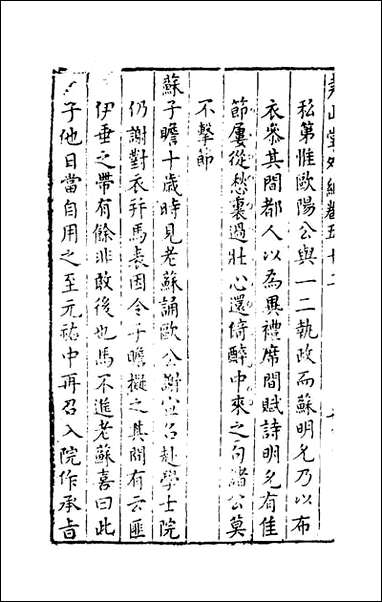 堯山堂外紀卷五十二
私第惟歐陽公與一二執政而蘇明允乃以布
衣參其間都人以為異禮席間賦詩明允有佳
節屢從愁裏過壯心還倚醉中來之句諸公莫
不擊節
蘇子瞻十歲時見老蘇誦歐公謝宣召赴學士院
仍謝對衣并馬表因令子瞻擬之其間有云匪
伊垂之帶有餘非敢後也馬不進老蘇喜曰此
子他日當自用之至元祐中再召入院作承旨